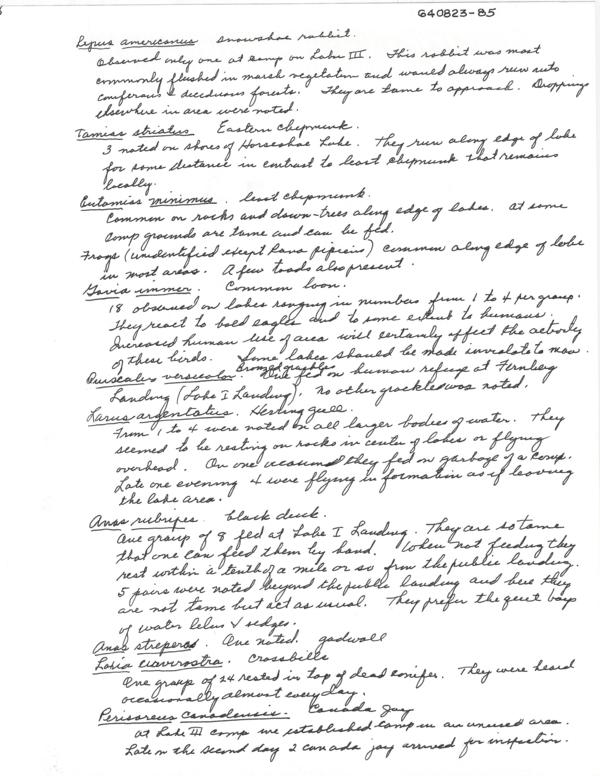 G40823-85
Lepus americanus snowshoe rabbit.
Observed only one at camp on Lake III. This rabbit was most
commonly flushed in marsh vegetation and would always run into
coniferous & deciduous forests. They are tame to approach. Droppings
elsewhere in area were noted.
Tamias striatus Eastern chipmunk.
3 noted on shores of Horseshoe Lake. They run along edge of lake
for some distance in contrast to least chipmunk that remains
locally.
Eutamias minimus. least chipmunk.
Common on rocks and down-trees along edge of lakes. At some
camp grounds are tame and can be fed.
Frogs (unidentified except Rana pipiens) common along edge of lake
in most areas. A few toads also present.
Gavia immer. Common loon.
18 observed on lakes ranging in numbers from 1 to 4 per group.
They react to bald eagles and to some extent to humans.
Increased human use of area will certainly affect the activity
of these birds. Some lakes should be made inviolate to man.
Quiscalus versicolor. Bronzed grackle. One fed on human refuse at Fernberg
Landing (Lake I Landing). No other grackles was noted.
Larus argentatus. Herring gull.
From 1 to 4 were noted on all larger bodies of water. They
seemed to be resting on rocks in center of lakes or flying
overhead. On one occasion they fed on garbage of a camp.
Late one evening 4 were flying in formation as if leaving
the lake area.
Anas rubripes. black duck.
One group of 8 fed at Lake I Landing. They are so tame
that one can feed them by hand. When not feeding they
rest within a tenth of a mile or so from the public landing.
5 pairs were noted beyond the public landing and here they
are not tame but act as usual. They prefer the quiet bays
of water lilies & sedges.
Anas streperas. One noted. gadwall
Loxia curvirostra. Crossbills
One group of 14 rested in top of dead conifer. They were heard
occasionally almost every day.
Perisoreus canadensis. Canada Jay
At Lake III camp we established camp in an unused area.
Late on the second day 2 canada jay arrived for inspection.